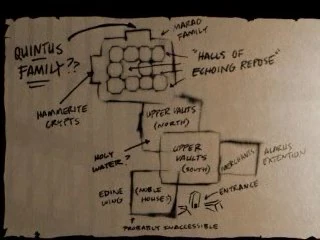 MARAD
FAMILY
QUINTUS
FAMILY??
"HALLS OF
ECHOING REPOSE"
HAMMERITE
CRYPTS
UPPER VAULTS
(NORTH)
HOLY
WATER?
UPPER
VAULTS
(SOUTH)
MERCHANTS
ALARUS
EXTENTION
EDINE
WING
(NOBLE
HOUSE?)
ENTRANCE
PROBABLY INACCESSIBLE